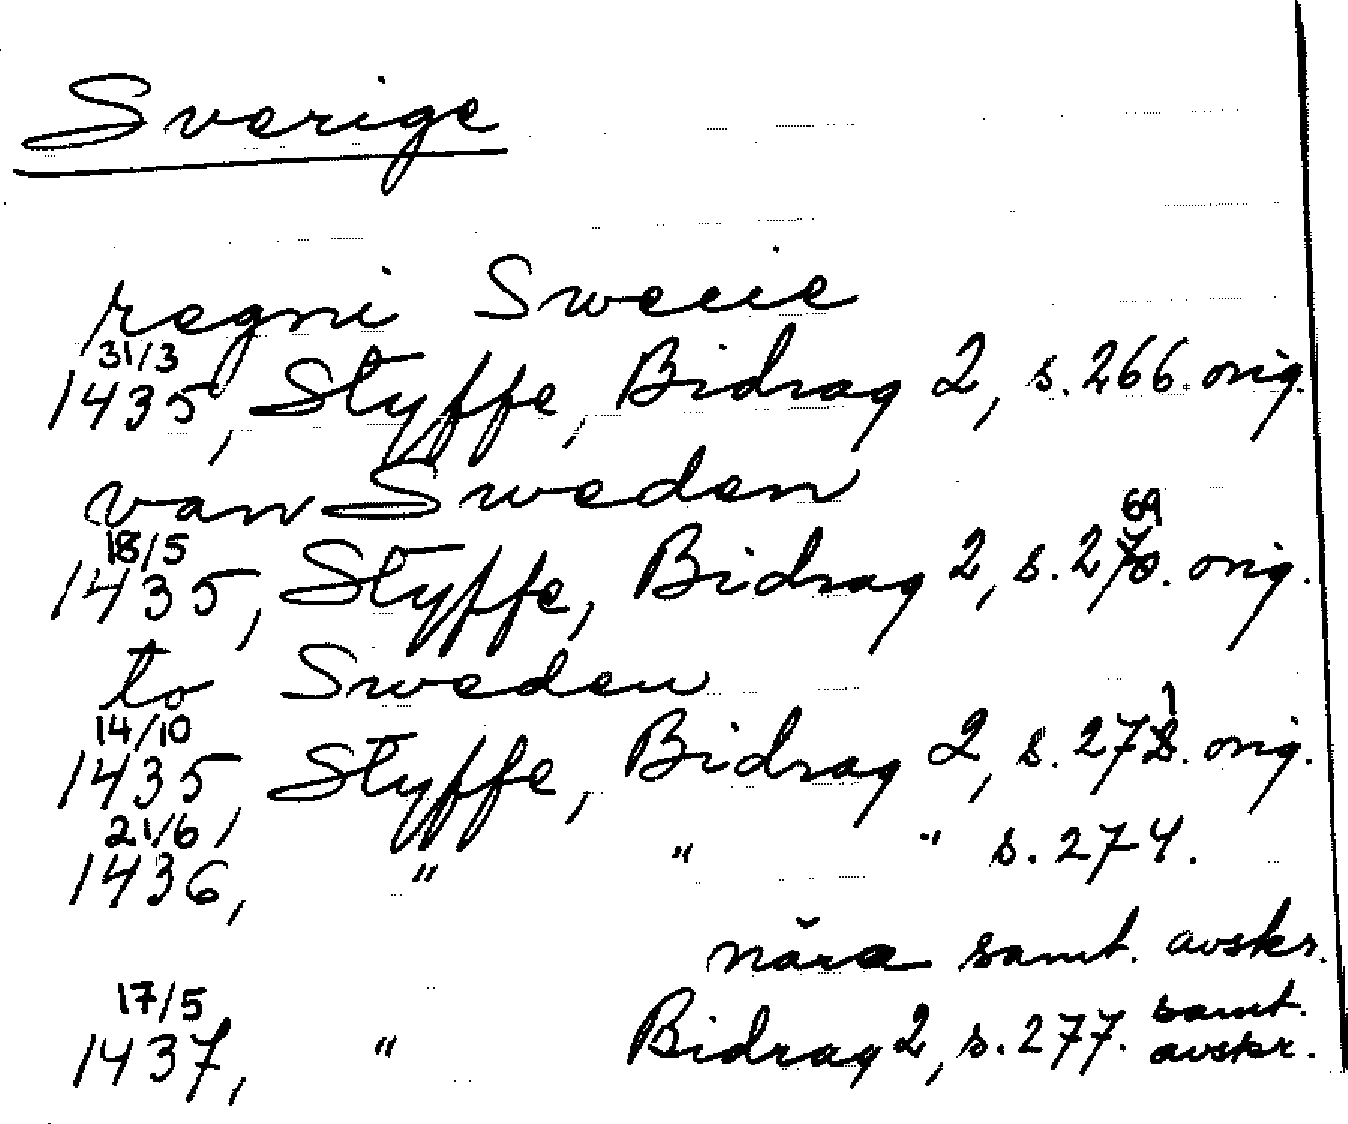 Sverige
regni Sweeie
31/3
1435, Styffe, Bidrag 2, s. 266. orig.
van Sweden
18/5 69
1435, Styffe, Bidrag 2, s. 270. orig.
to Sweden
14/10 1
1435, Styffe, Bidrag 2, s. 272. orig.
21/6
1436, " " " s. 274.
nära samt. avskr.
17/5 samt.
1437, " Bidrag 2, s. 277. avskr.